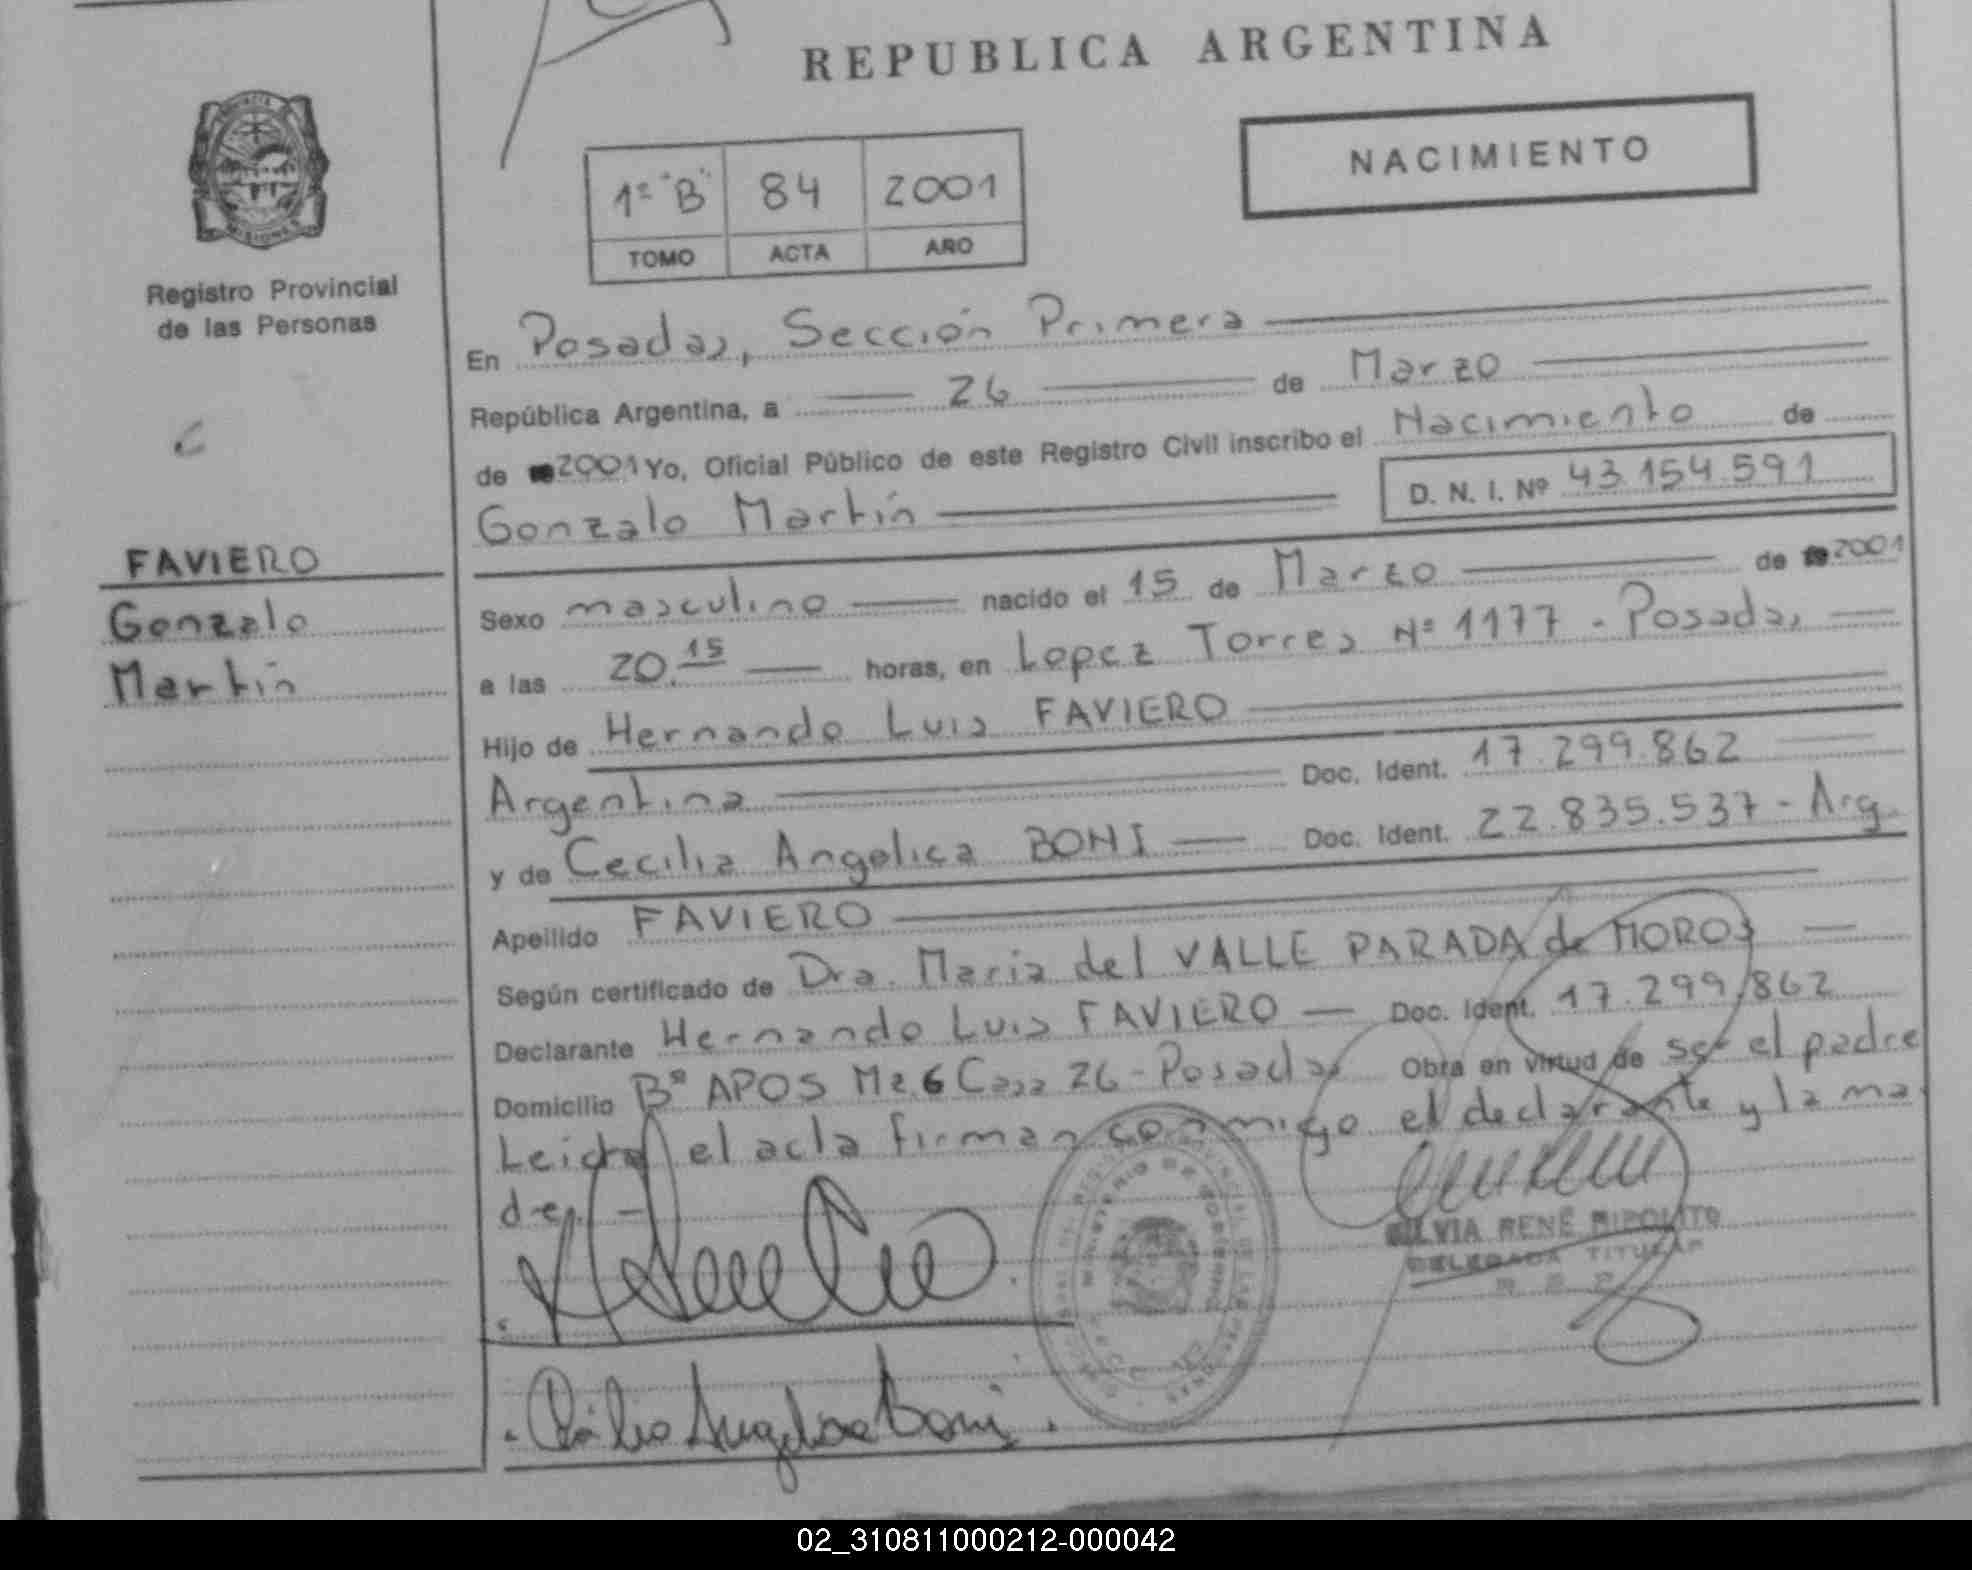 REPUBLICA ARGENTINA
NACIMIENTO
1º "B" 84 2001
TOMO ACTA AÑO
MISIONES
Registro Provincial
de las Personas
En Posadas, Sección Primera
República Argentina, a 26 de Marzo
de 2001 Yo, Oficial Público de este Registro Civil inscribo el Nacimiento de
Gonzalo Martín D. N. I. Nº 43.154.591
FAVIERO
Gonzalo
Martín
Sexo masculino nacido el 15 de Marzo de 2001
a las 20.15 horas, en Lopez Torres Nº 1177 - Posadas
Hijo de Hernando Luis FAVIERO
Argentina Doc. Ident. 17.299.862
y de Cecilia Angelica BONI Doc. Ident. 22.835.537 - Arg.
Apellido FAVIERO
Según certificado de Dra. Maria del VALLE PARADA de MOROS
Declarante Hernando Luis FAVIERO Doc. Ident. 17.299.862
Domicilio Bº APOS Mz.6 Casa 26 - Posadas Obra en virtud de ser el padre
Leida el acta firman conmigo el declarante y la ma
dre. -
SILVIA RENÉ HIPOLITO
DELEGADA TITULAR
Cecilia Angelica Boni
02_310811000212-000042